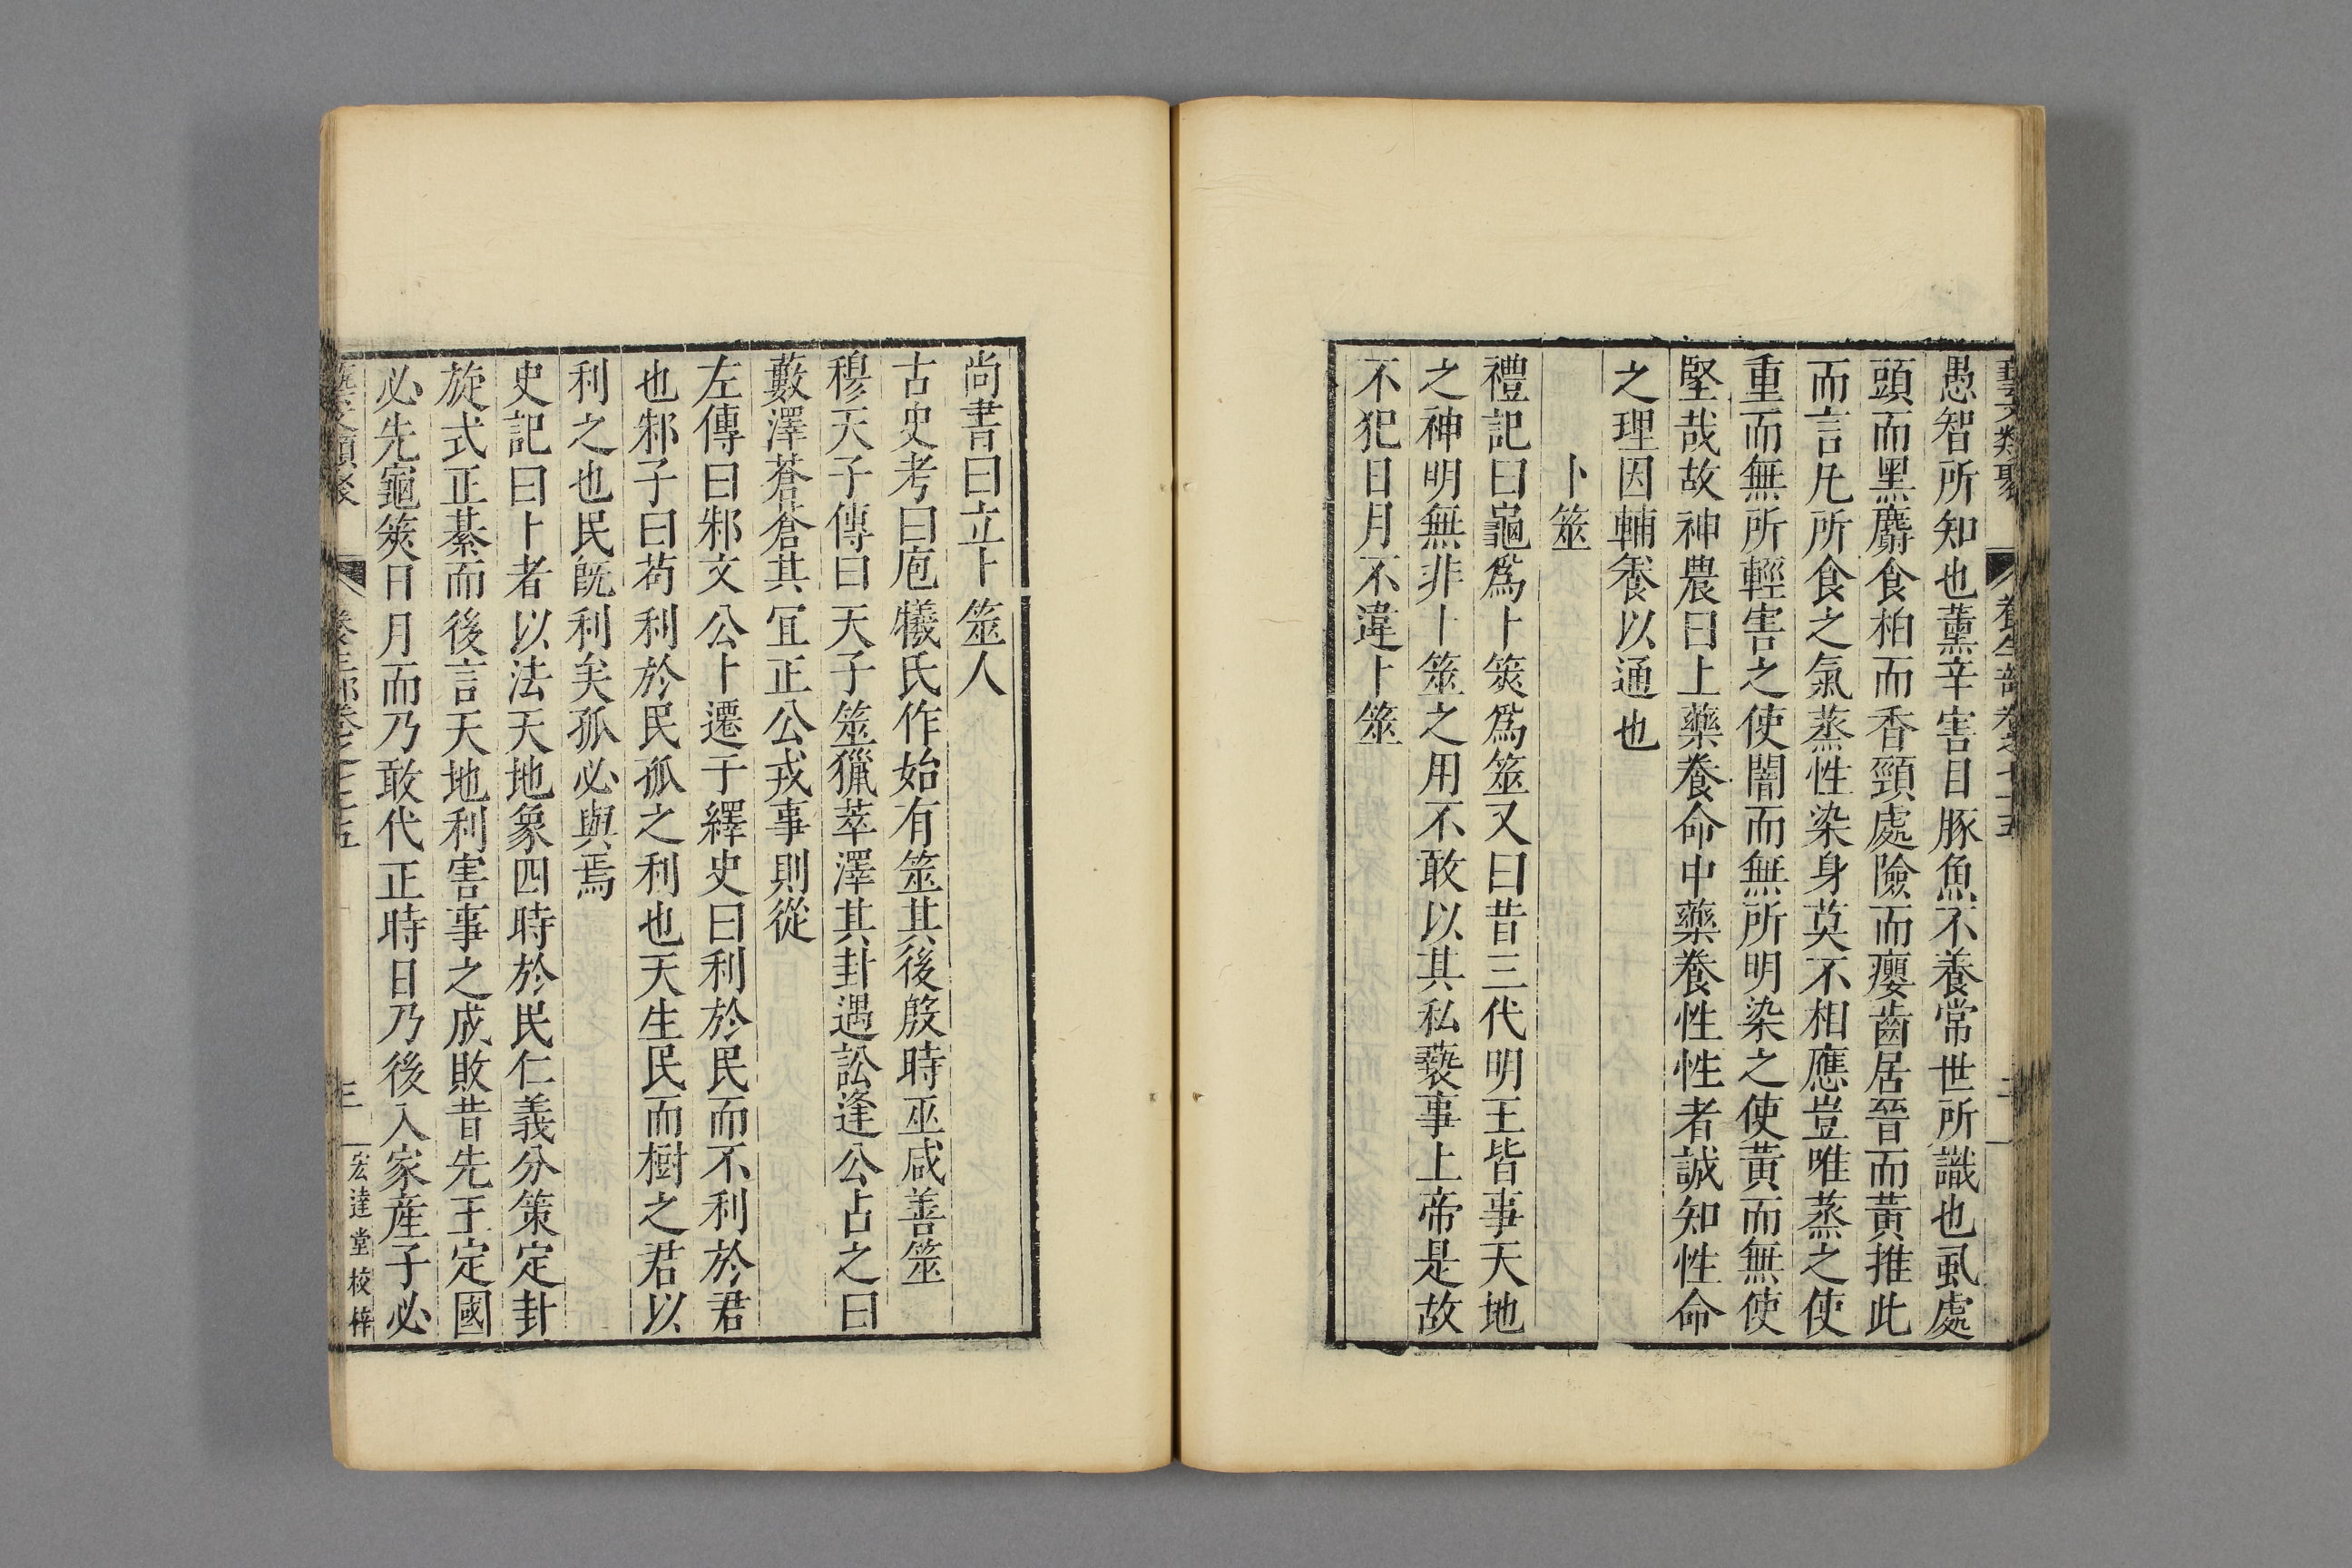 藝文類聚 養生部卷之七十五 二
愚智所知也薰辛害目豚魚不養常世所識也虱處
頭而黑麝食柏而香頸處險而癭齒居晉而黃推此
而言凡所食之氣蒸性染身莫不相應豈唯蒸之使
重而無所輕害之使闇而無所明染之使黃而無使
堅哉故神農曰上藥養命中藥養性性者誠知性命
之理因輔養以通也
卜筮
禮記曰龜爲卜筴爲筮又曰昔三代明王皆事天地
之神明無非卜筮之用不敢以其私褻事上帝是故
不犯日月不違卜筮
尚書曰立卜筮人
古史考曰庖犧氏作始有筮其後殷時巫咸善筮
穆天子傳曰天子筮獵萃澤其卦遇訟逢公占之曰
藪澤蒼蒼其冝正公戎事則從
左傳曰邾文公卜遷于繹史曰利於民而不利於君
也邾子曰苟利於民孤之利也天生民而樹之君以
利之也民旣利矣孤必與焉
史記曰卜者以法天地象四時於民仁義分策定卦
旋式正綦而後言天地利害事之成敗昔先王定國
必先龜筴日月而乃敢代正時日乃後入家産子必
藝文類聚 三 宏達堂校梓